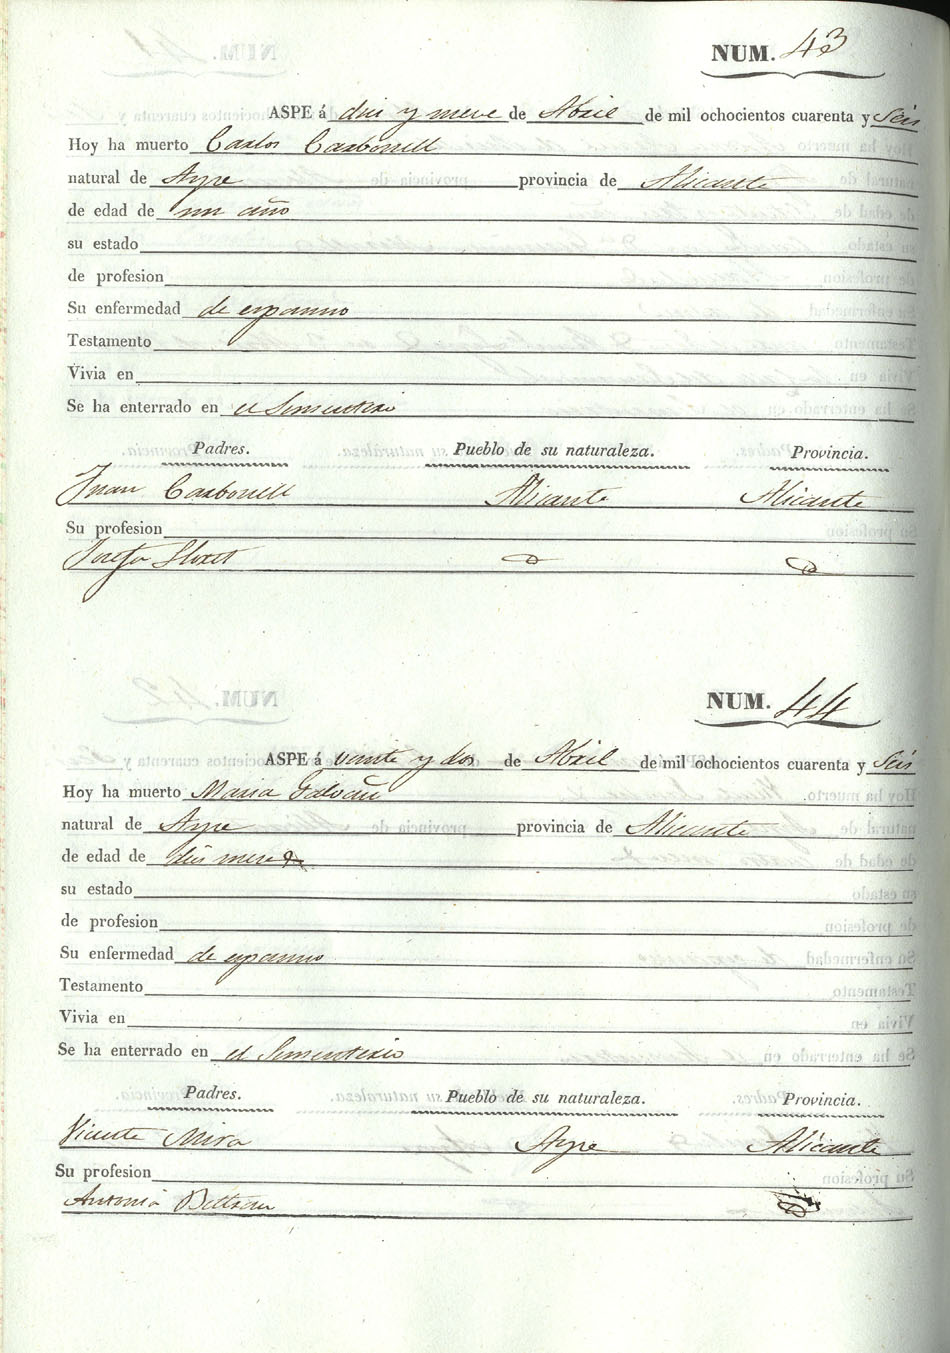 NUM. 43
ASPE á diez y nueve de Abril de mil ochocientos cuarenta y Seis
Hoy ha muerto Carlos Carbonell
natural de Aspe provincia de Alicante
de edad de un año
su estado
de profesion
Su enfermedad de espasmo
Testamento
Vivia en
Se ha enterrado en el Sementerio
Padres. Pueblo de su naturaleza. Provincia.
Juan Carbonell Alicante Alicante
Su profesion
Josefa Lloret
NUM. 44
ASPE á veinte y dos de Abril de mil ochocientos cuarenta y Seis
Hoy ha muerto Maria Galvañ
natural de Aspe provincia de Alicante
de edad de meses
su estado
de profesion
Su enfermedad de espasmo
Testamento
Vivia en
Se ha enterrado en el Sementerio
Padres. Pueblo de su naturaleza. Provincia.
Vicente Mira Aspe Alicante
Su profesion
Antonia Beltran